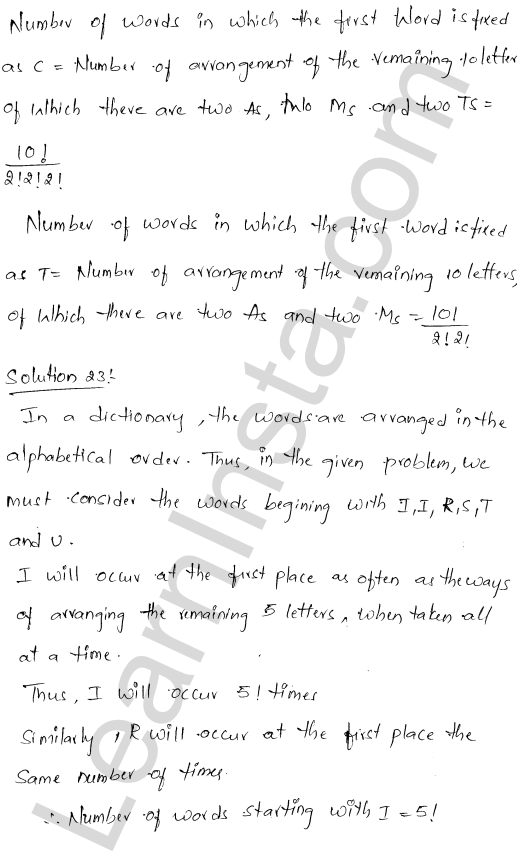 Number of words in which the first Word is fixed
as C = Number of arrangement of the remaining 10 letter
of Which there are two As, two Ms and two Ts =
10!
2!2!2!
Number of words in which the first word is fixed
as T = Number of arrangement of the remaining 10 letters,
of Which there are two As and two Ms = 10!
2!2!
Solution 23:-
In a dictionary, the words are arranged in the
alphabetical order. Thus, in the given problem, we
must consider the words begining with I, I, R, S, T
and U.
I will occur at the first place as often as the ways
of arranging the remaining 5 letters, when taken all
at a time.
Thus, I will occur 5! times
Similarly, R will occur at the first place the
Same number of times.
∴ Number of words starting with I = 5!
LearnInsta.com